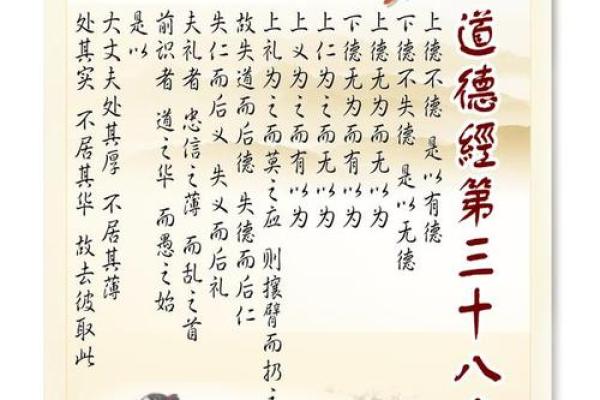 道德經第三十八
上德不德 是以有德
下德不失德 是以无德
上德无为而无以为
下德无为而有以为
上仁为之而无以为
上义为之而有以为
上礼为之而莫之应 则攘臂而扔之
故失道而后德 失德而后仁
失仁而后义 失义而后礼
夫礼者 忠信之薄 而乱之首
前识者 道之华 而愚之始
是以
大丈夫处其厚 不居其薄
处其实 不居其华 故去彼取此